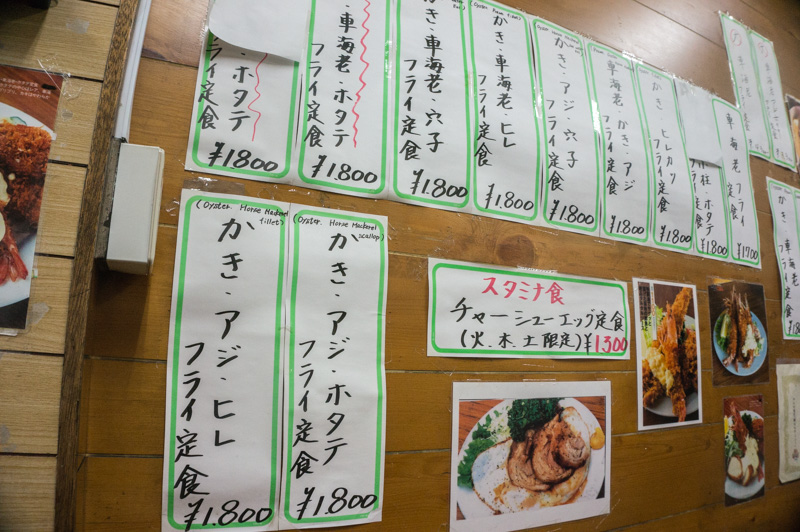 ホタテ
フライ定食
¥1.800
車海老・ホタテ
フライ定食
¥1.800
かき・車海老・穴子
フライ定食
¥1.800
かき・車海老・ヒレ
フライ定食
¥1.800
かき・アジ・穴子
フライ定食
¥1.800
車海老・かき・アジ
フライ定食
¥1.800
かき・ヒレカツ
フライ定食
¥1.800
柱・ホタテ
定食
¥1.800
車海老フライ
定食
¥1700
(Oyster. Horse Mackerel
fillet)
かき・アジ・ヒレ
フライ定食
¥1.800
(Oyster. Horse Mackerel
scallop)
かき・アジ・ホタテ
フライ定食
¥1.800
スタミナ食
チャーシューエッグ定食
(火.木.土限定)¥1.300
かき・車海老
フライ定食